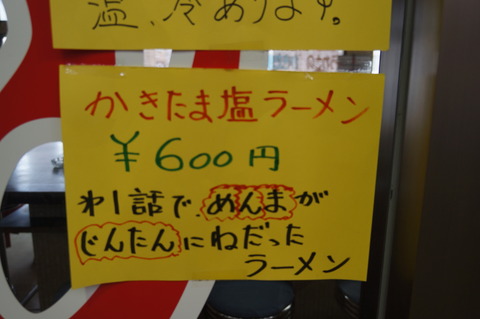 温、冷あります。
かきたま塩ラーメン
¥600円
オ1話で、めんまが
じんたんにねだった
ラーメン